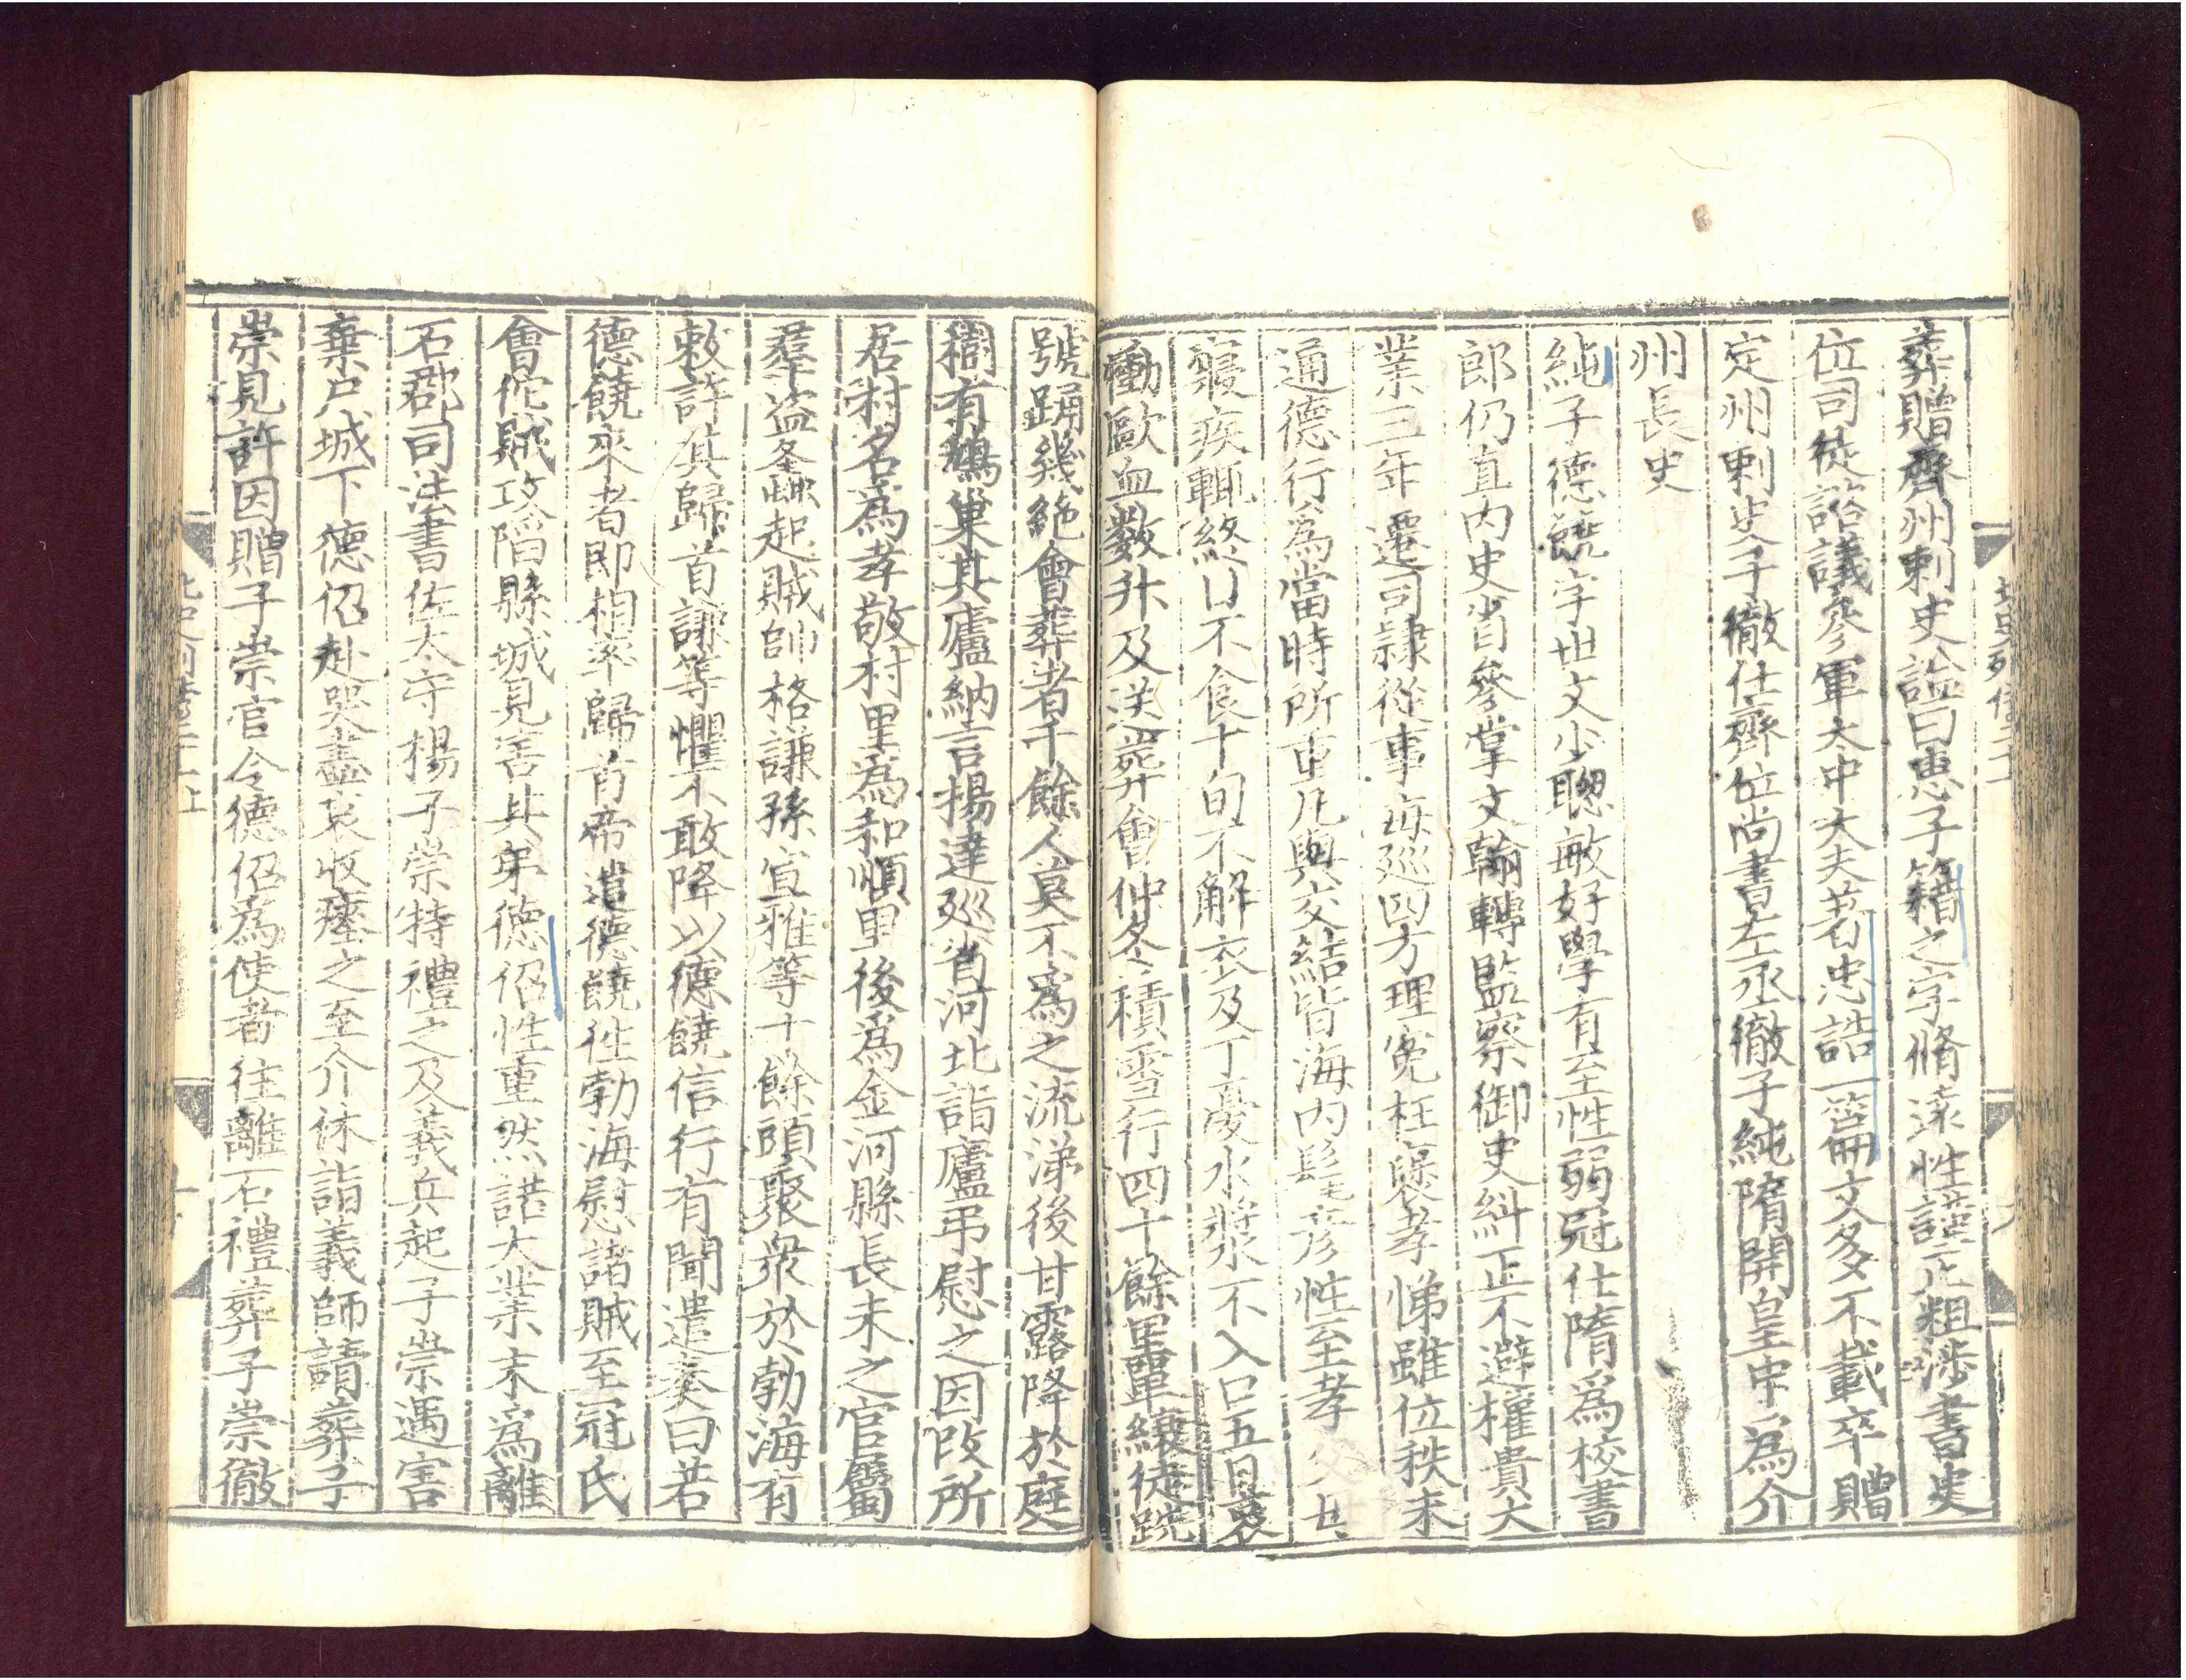 葬贈齊州刺史謚曰惠子籍之字脩遠性謹正粗涉書史
位司徒諮議參軍太中大夫着忠誥一篇文多不載卒贈
定州刺史子徹仕齊位尚書左丞徹子純隋開皇中爲介
州長史
純子德饒字世文少聰敏好學有至性弱冠仕隋爲校書
郎仍直內史省參掌文翰轉監察御史糾正不避權貴大
業三年遷司隷從事每巡四方理寃枉襃孝悌雖位秩未
通德行爲當時所重凡與交結皆海內髦彥性至孝父母
寢疾輒終日不食十旬不解衣及丁憂水漿不入口五日哀
慟歐血数升及送葬會仲冬積雪行四十餘里單縗徒跣
號踊幾絶會葬者千餘人莫不爲之流涕後甘露降於庭
樹有鵲巢其廬納言楊達巡省河北詣廬弔慰之因改所
居村名爲孝敬村里爲和順里後爲金河縣長未之官屬
羣盗蜂起賊帥格謙孫宣雅等十餘頭聚衆於勃海有
敕許其歸首謙等懼不敢降以德饒信行有聞遣奏曰若
德饒來者即相率歸首帝遣德饒往勃海慰諸賊至冠氏
會佗賊攻陷縣城見害其弟德佋性重然諾大業末爲離
石郡司法書佐太守楊子崇特禮之及義兵起子崇遇害
棄尸城下德佋赴哭盡哀收瘞之至介休詣義師請葬子
崇見許因贈子崇官令德佋爲使者往離石禮葬子崇徹